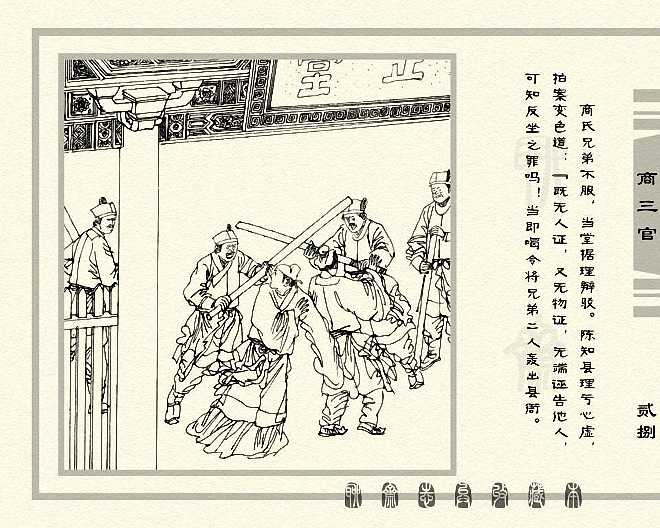 商氏兄弟不服，当堂据理辩驳。陈知县理亏心虚，
拍案变色道：“既无人证，又无物证，无端诬告他人，
可知反坐之罪吗！当即喝令将兄弟二人轰出县衙。
商三官
贰捌
正
堂
聊斋志异收藏本